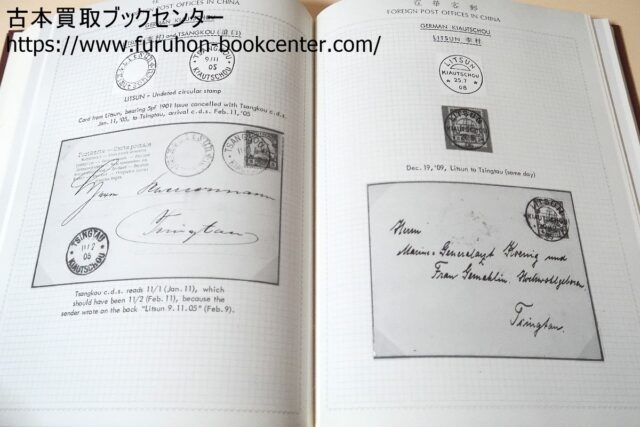 古本買取ブックセンター
https://www.furuhon-bookcenter.com/
FOREIGN POST OFFICES IN CHINA
TSANGKOU
KIAUTSCHOU
9/11
05
LITSUN - Undated circular stamp
Card from Litsun, bearing 5pf 1901 issue cancelled with Tsangkou c.d.s.
Jan. 11, '05, to Tsingtau, arrival c.d.s. Feb. 11, '05
Postkarte - Carte postale
Herrn
Tsingtau
TSINGTAU
11/2
05
KIAUTSCHOU
Tsangkou c.d.s. reads 11/1 (Jan. 11), which
should have been 11/2 (Feb. 11), because the
sender wrote on the back "Litsun 9.11.05" (Feb. 9).
在華客郵
FOREIGN POST OFFICES IN CHINA
GERMAN KIAUTSCHOU
LITSUN 李村
LITSUN
KIAUTSCHOU
25.7
08
Dec. 19, '09, Litsun to Tsingtau (same day)
Herrn
Marine-Generalarzt Koenig und
Frau Gemahlin, Hochwohlgeboren
Tsingtau.